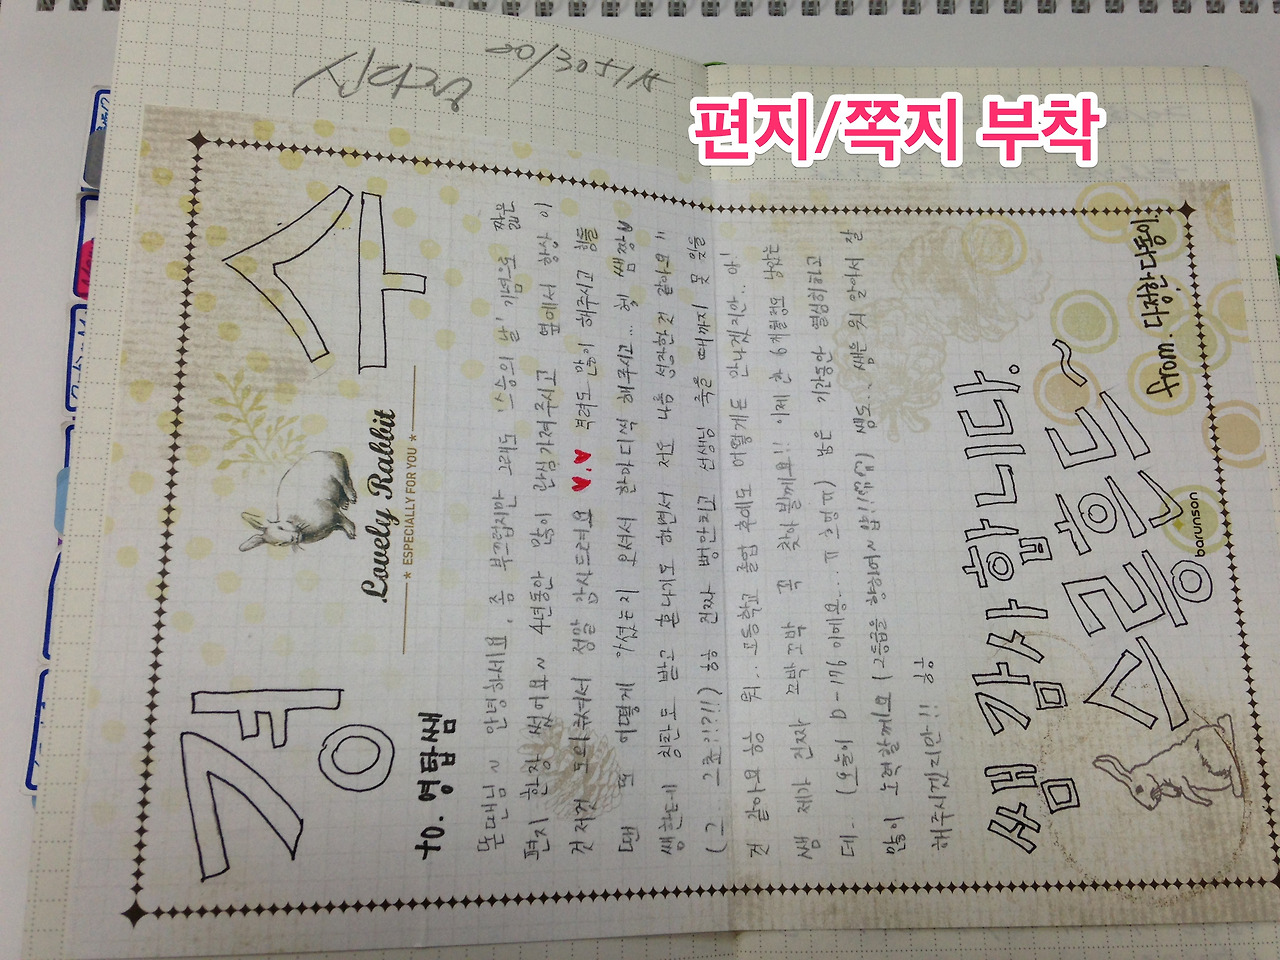 편지/쪽지 부착
경 수
Lovely Rabbit
* ESPECIALLY FOR YOU *
to. 영탑쌤
안녕하세요. 좀 부끄럽지만 그래도 '스승의 날' 기념으로 짧은
편지 한장 썼어요~ 4년동안 많이 관심가져주시고 옆에서 항상 이
것저것 도와주셔서 정말 감사드려요 ♥.♥ 격려도 많이 해주시고 힘들
땐 또 어떻게 아셨는지 오셔서 한마디씩 해주시고... 헿 쌤짱
쌤한테 칭찬도 받고 혼나기도 하면서 저도 나름 성장한것 같아요!!
(그 그죠?!?!!) 흐흐 진짜 병안타고 선생님 죽을 때까지 못 잊을
것 같아요 흐흐 뭐.. 고등학교 졸업 후에도 어떻게든 만나겠지만.. 아!
쌤 제가 진짜 꼬박꼬박 꼭 찾아뵐께요!! 이제 한 6개월정도 남았는
데.. (오늘이 D-176 이에용...ㅠ 흐엉ㅠ) 남은 기간동안 열심히하고
많이 노력할께요 (고등급을 향하여~ 얍!) 쌤도.. 쌤은 뭐 알아서 잘
해주시겠지만!! 흐흐
쌤 감사합니다.
스릉흔드~
from. 다정한 다동이
barunson